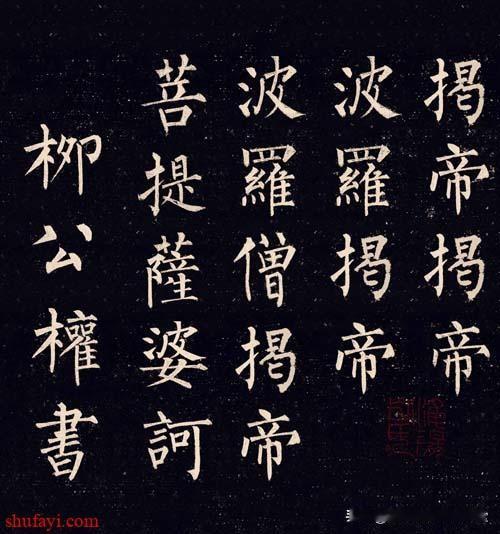 揭帝揭帝
波羅揭帝
波羅僧揭帝
菩提薩婆訶
柳公權書
shufayi.com